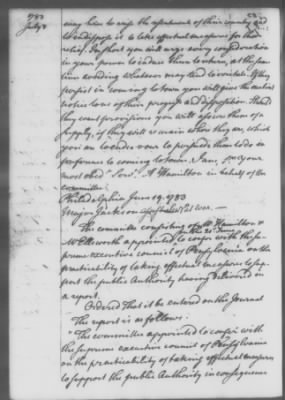 1783
July
may here to raise the resentment of their country and
to indispose it to take effectual measures for their
relief. In short you will urge every consideration
in your power to induce them to return, at the same
time avoiding whatever may tend to irritate. If they
persist in coming to town you will give the earliest
notice to us of their progress and disposition. Should
they want provisions you will assure them of a
supply, if they will remain where they are, which
you are to endeavour to persuade them to do in
preference to coming to town. I am, sir, your
most obt. Servt. A Hamilton in behalf of the
committee.
Philadelphia June 19. 1783
Major Jackson
The committee consisting of Mr. Hamilton &
Mr Ellsworth appointed to confer with the su-
preme executive council of Pensylvania on the
practicability of taking effectual measures to sup-
port the public Authority having delivered in
a report.
Ordered That it be entered on the Journal
The report is as follows.
"The committee appointed to confer with
the Supreme executive council of Pensylvania
on the practicability of taking effectual measures
to support the public Authority in consequence